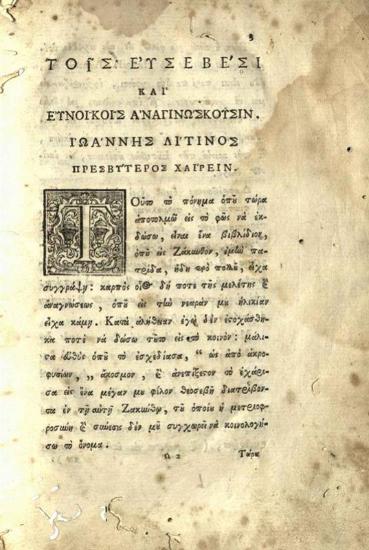 3
ΤΟΙ͂Σ ΕΥ̓ΣΕΒΈΣΙ
ΚΑῚ
ΕΥ̓ΝΟΪΚΟΙ͂Σ ἈΝΑΓΙΝΏΣΚΟΥΣΙΝ.
ἸΩΆΝΝΗΣ ΛΙΤΙΝΟΣ
ΠΡΕΣΒΎΤΕΡΟΣ ΧΑΊΡΕΙΝ.
Τοῦτο τὸ πόνημα ὁποῦ τώρα
ἀποτολμῶ εἰς τὸ φῶς νὰ ἐκ-
δώσω, εἶναι ἕνα βιβλίδιον,
ὁποῦ εἰς Ζάκυνθον, ἐμὴν πα-
τρίδα, ἤδη πρὸ πολλοῦ, εἶχα
συγγράψῃ: καρπὸς οἷος δή ποτε τῆς μελέτης καὶ
ἀναγνώσεως, ὁποῦ εἰς τὴν νεαράν μου ἡλικίαν
εἶχα κάμῃ. Κατὰ ἀλήθειαν ἐγὼ δὲν ἐστοχάσθη-
κα ποτὲ νὰ δώσω τοῦτο εἰς τὸ κοινόν: μάλιστα
εὐθὺς ὁποῦ τὸ ἐσχεδίασα, “ ὡς ἀπὸ ἀκρο-
φυσίων, „ ἄκοσμον, καὶ ἀνεπίξεστον τὸ ἐχάρι-
σα εἰς ἕνα μέγαν μου φίλον Θεοσεβῆ διατρίβον-
τα ἐν τῇ αὐτῇ Ζακύνθῳ, τοῦ ὁποίου ἡ μετριοφ-
ροσύνη καὶ σύνεσις δὲν μοῦ συγχωρεῖ νὰ κοινολογή-
σω τὸ ὄνομα.
α 2 Τώρα